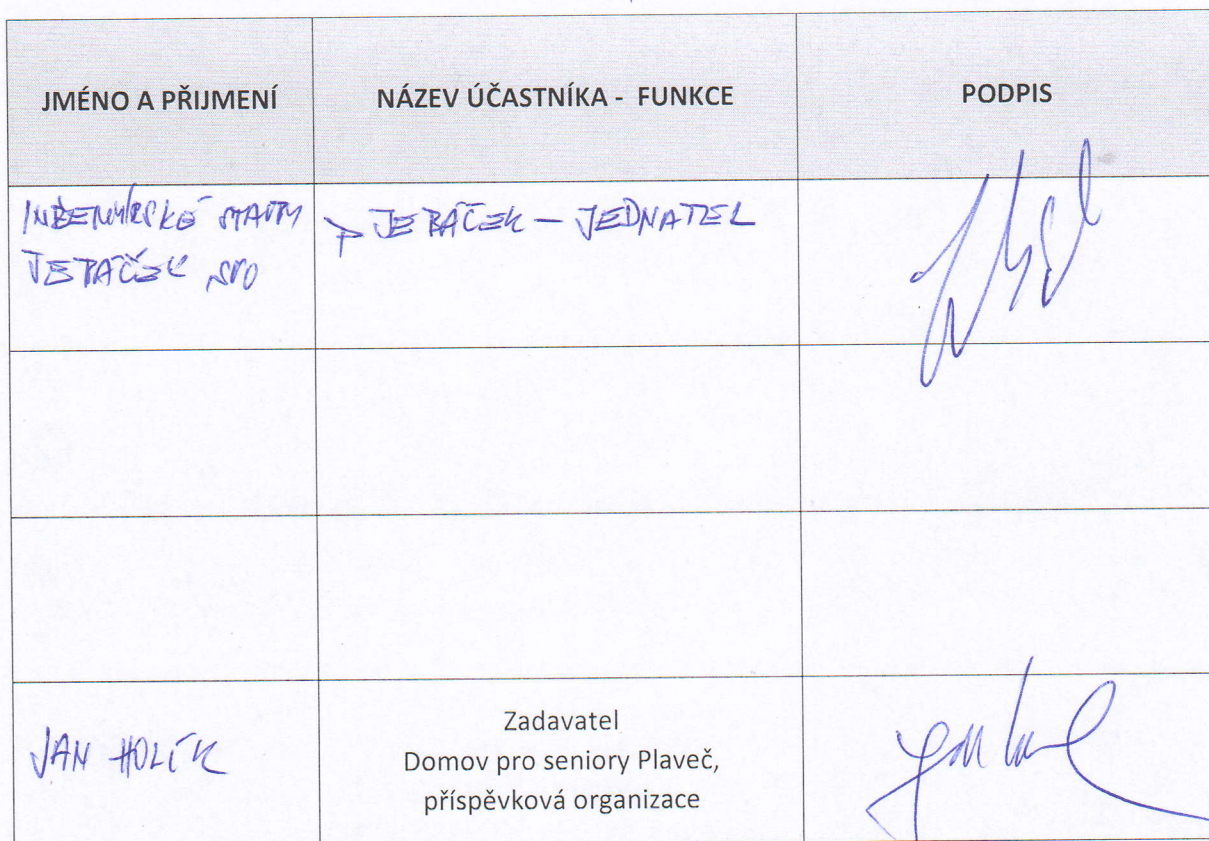 JMÉNO A PŘIJMENÍ
NÁZEV ÚČASTNÍKA - FUNKCE
PODPIS
INŽENÝRSKÉ STAVBY
JEBÁČEK SRO
JEBÁČEK – JEDNATEL
JAN HOLÍK
Zadavatel
Domov pro seniory Plaveč,
příspěvková organizace